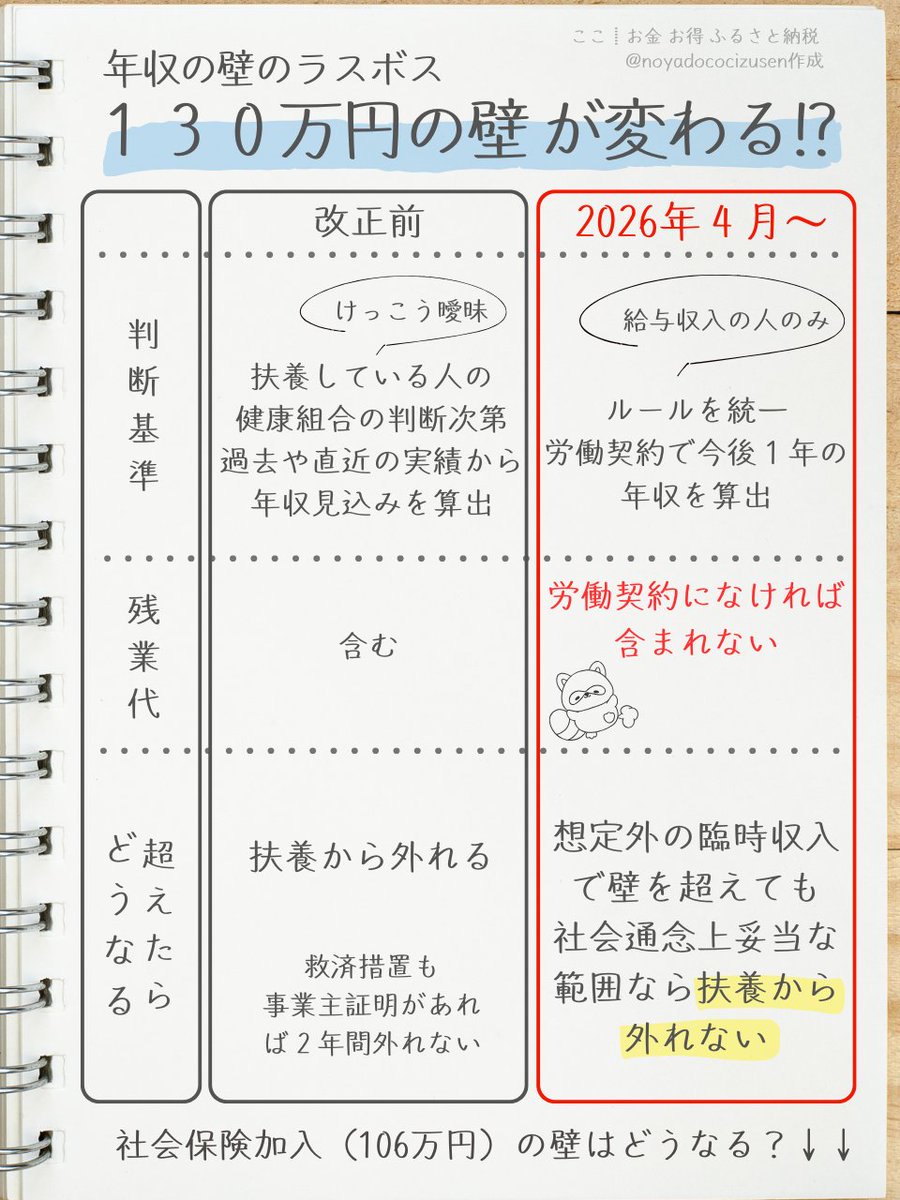 ここ┊お金 お得 ふるさと納税
@noyadococizusen作成
年収の壁のラスボス
１３０万円の壁が変わる!?
改正前
2026年４月〜
判断基準
けっこう曖昧
扶養している人の
健康組合の判断次第
過去や直近の実績から
年収見込みを算出
給与収入の人のみ
ルールを統一
労働契約で今後１年の
年収を算出
残業代
含む
労働契約になければ
含まれない
超えたら
どうなる
扶養から外れる
救済措置も
事業主証明があれ
ば２年間外れない
想定外の臨時収入
で壁を超えても
社会通念上妥当な
範囲なら扶養から
外れない
社会保険加入（106万円）の壁はどうなる？↓↓